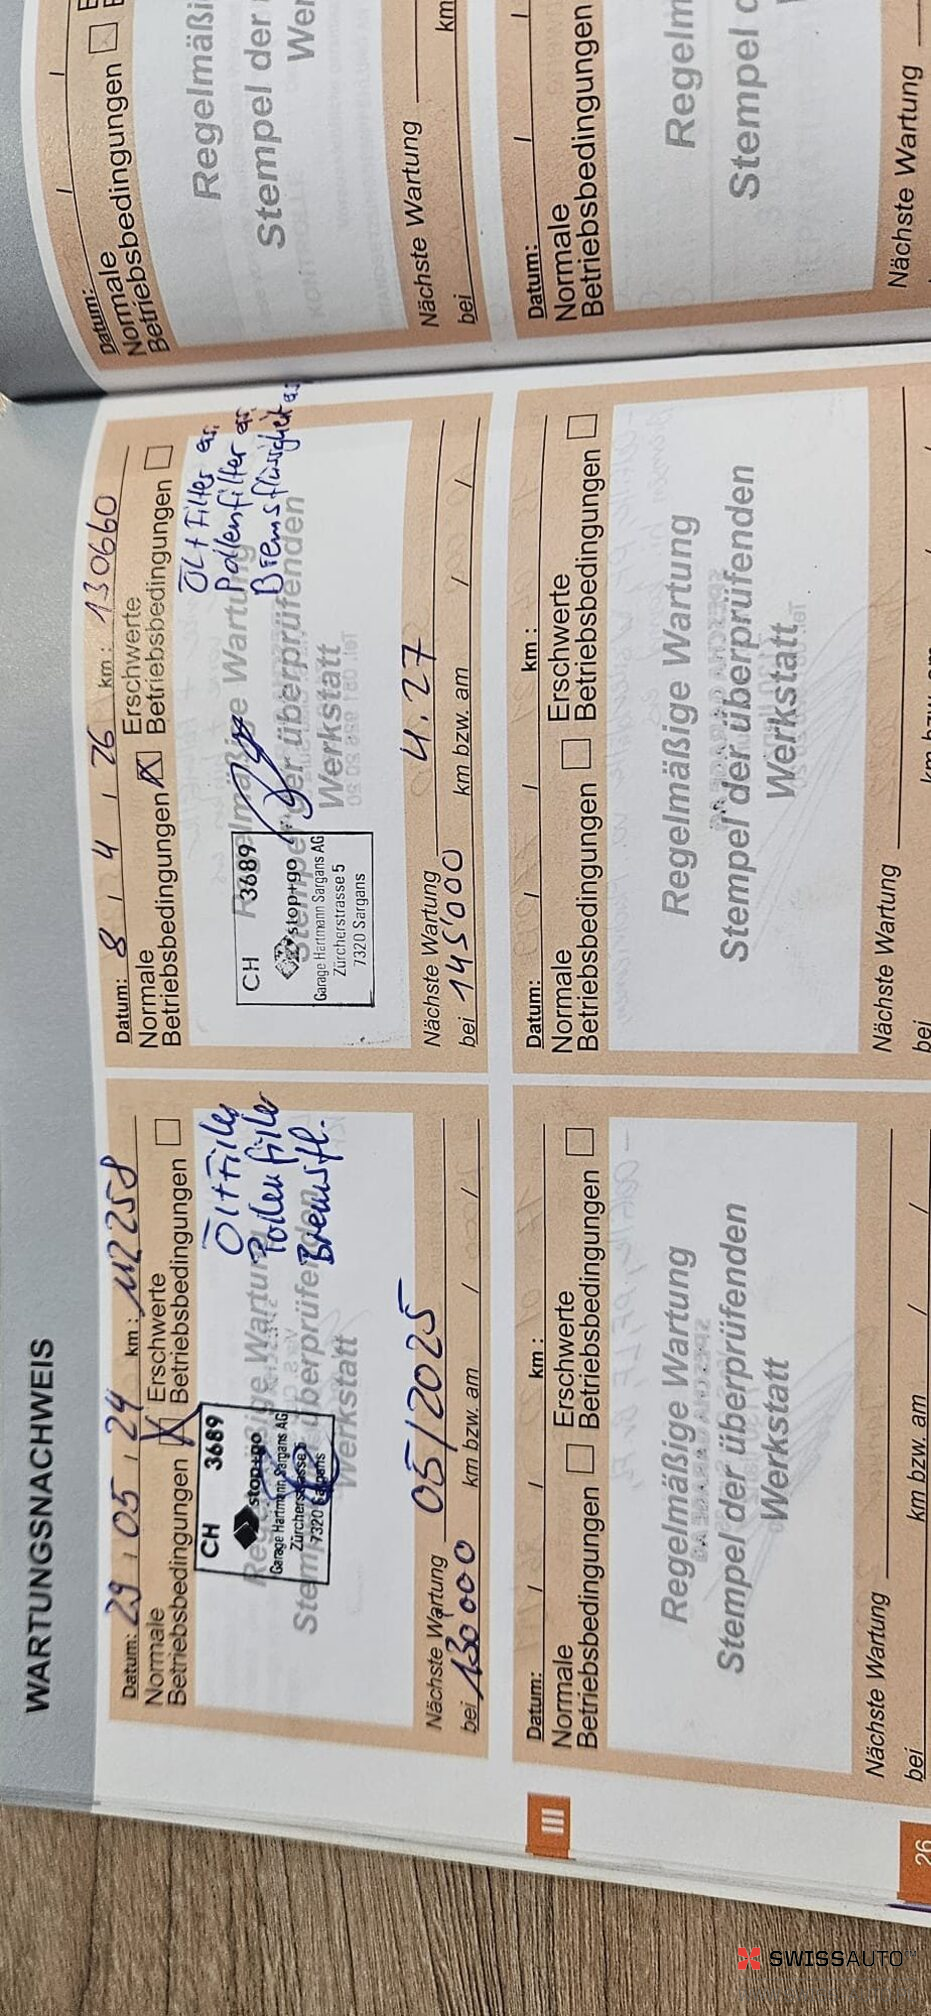 WARTUNGSNACHWEIS
Datum: 29 / 05 / 24 km: 112258
Normale Erschwerte
Betriebsbedingungen Betriebsbedingungen
Öl+Filter
Pollenfilter
Bremsfl.
Regelmäßige Wartung
Stempel der überprüfenden
Werkstatt
CH 3689
stop+go
Garage Hartmann Sargans AG
Zürcherstrasse 5
7320 Sargans
Nächste Wartung 05/2025
bei 130'000 km bzw. am / /
Datum: 8 / 4 / 26 km: 130660
Normale Erschwerte
Betriebsbedingungen Betriebsbedingungen
Öl+Filter er.
Pollenfilter er.
Bremsflüssigkeit er.
Regelmäßige Wartung
Stempel der überprüfenden
Werkstatt
CH 3689
stop+go
Garage Hartmann Sargans AG
Zürcherstrasse 5
7320 Sargans
Nächste Wartung 4.27
bei 145'000 km bzw. am / /
Datum: / / km:
Normale Erschwerte
Betriebsbedingungen Betriebsbedingungen
Regelmäßige Wartung
Stempel der überprüfenden
Werkstatt
Nächste Wartung
bei km bzw. am / /
Datum: / / km:
Normale Erschwerte
Betriebsbedingungen Betriebsbedingungen
Regelmäßige Wartung
Stempel der überprüfenden
Werkstatt
Nächste Wartung
bei km bzw. am /
III
26
Datum: / /
Normale
Betriebsbedingungen
Regelmäßi
Stempel der
Wer
Nächste Wartung
bei km
Datum: / /
Normale
Betriebsbedingungen
Regelm
Stempel
Nächste Wartung
SWISSAUTO